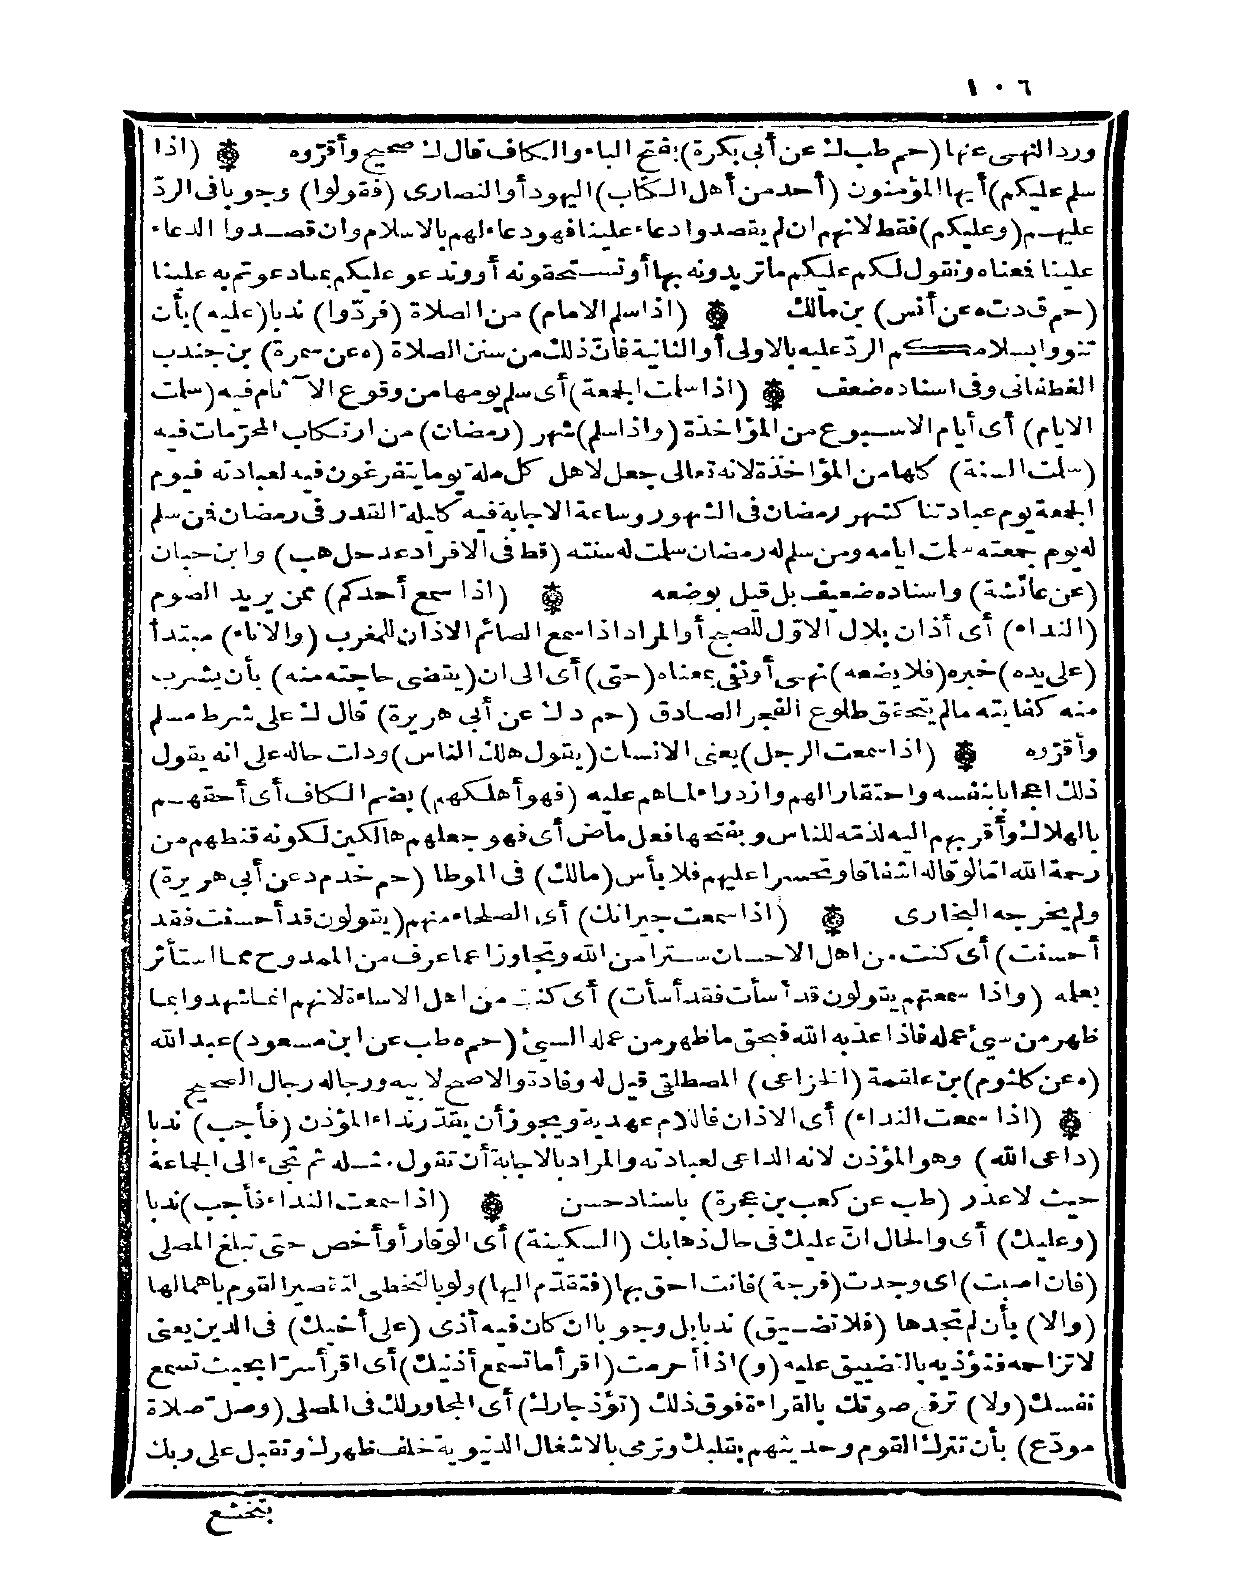 ١٠٦
ورد النهى عنها (حم طب ك عن أبى بكرة) بفتح الباء والكاف قال ك صحيح وأقروه ۞ (اذا
سلم عليكم) أيها المؤمنون (أحد من أهل الكتاب) اليهود أو النصارى (فقولوا) وجوبا فى الردّ
عليهم (وعليكم) فقط لانهم ان لم يقصدوا دعاء علينا فهو دعاء لهم بالاسلام وان قصدوا الدعاء
علينا فمعناه ونقول لكم عليكم ما تريدونه بها أو تستحقونه أو وندعو عليكم بما دعوتم به علينا
(حم ق د ت ه عن أنس) بن مالك ۞ (اذا سلم الامام) من الصلاة (فردّوا) ندبا (عليه) بأن
تنووا بسلامكم الردّ عليه بالاولى أو الثانية فان ذلك من سنن الصلاة (ه عن سمرة) بن جندب
الغطفانى وفى اسناده ضعف ۞ (اذا سلمت الجمعة) أى سلم يومها من وقوع الآثام فيه (سلمت
الايام) أى أيام الاسبوع من المؤاخذة (واذا سلم) شهر (رمضان) من ارتكاب المحرّمات فيه
(سلمت السنة) كلها من المؤاخذة لانه تعالى جعل لاهل كل ملة يوما يتفرغون فيه لعبادته فيوم
الجمعة يوم عبادتنا كشهر رمضان فى الشهور وساعة الاجابة فيه كليلة القدر فى رمضان فمن سلم
له يوم جمعته سلمت ايامه ومن سلم له رمضان سلمت له سنته (قط فى الافراد عد حل هب) وابن حبان
(عن عائشة) واسناده ضعيف بل قيل بوضعه ۞ (اذا سمع أحدكم) ممن يريد الصوم
(النداء) أى أذان بلال الاوّل للصبح أو المراد اذا سمع الصائم الاذان للمغرب (والاناء) مبتدأ
(على يده) خبره (فلا يضعه) نهى أو نفى بمعناه (حتى) أى الى ان (يقضى حاجته منه) بأن يشرب
منه كفايته مالم يتحقق طلوع الفجر الصادق (حم د ك عن أبى هريرة) قال ك على شرط مسلم
وأقرّوه ۞ (اذا سمعت الرجل) يعنى الانسان (يقول هلك الناس) ودلت حاله على انه يقول
ذلك اعجابا بنفسه واحتقارا لهم وازدراء لما هم عليه (فهو أهلكهم) بضم الكاف أى أحقهم
بالهلاك وأقربهم اليه لذمّه للناس وبفتحها فعل ماض أى فهو جعلهم هالكين لكونه قنطهم من
رحمة الله امّا لو قاله اشفاقا وتحسرا عليهم فلا بأس (مالك) فى الموطا (حم خد م د عن أبى هريرة)
ولم يخرجه البخارى ۞ (اذا سمعت جيرانك) أى الصلحاء منهم (يقولون قد أحسنت فقد
أحسنت) أى كنت من اهل الاحسان سترا من الله وتجاوزا عما عرف من الممدوح مما استأثر
بعلمه (واذا سمعتهم يقولون قد أسأت فقد أسأت) أى كنت من اهل الاساءة لانهم انما شهدوا بما
ظهر من سيئ عمله فاذا عذبه الله فبحق ما ظهر من عمله السيئ (حم ه طب عن ابن مسعود) عبد الله
(ه عن كلثوم) بن علقمة (الخزاعى) المصطلقى قيل له وفادة والاصح لابيه ورجاله رجال الصحيح
۞ (اذا سمعت النداء) أى الاذان فاللام عهدية ويجوز أن يقدّر نداء المؤذن (فأجب) ندبا
(داعى الله) وهو المؤذن لانه الداعى لعبادته والمراد بالاجابة أن تقول مثله ثم تجىء الى الجماعة
حيث لا عذر (طب عن كعب بن عجرة) باسناد حسن ۞ (اذا سمعت النداء فأجب) ندبا
(وعليك) أى والحال انّ عليك فى حال ذهابك (السكينة) أى الوقار أو أخص حتى تبلغ المصلى
(فان اصبت) اى وجدت (فرجة) فانت احق بها (فتقدّم اليها) ولو بالتخطى لتقصير القوم باهمالها
(والا) بأن لم تجدها (فلا تضيق) ندبا بل وجوبا ان كان فيه أذى (على أخيك) فى الدين يعنى
لا تزاحمه فتؤذيه بالتضييق عليه (و) اذا أحرمت (اقرأ ما تسمع أذنيك) أى اقرأ سرّا بحيث تسمع
نفسك (ولا) ترفع صوتك بالقراءة فوق ذلك (تؤذ جارك) أى المجاور لك فى المصلى (وصل صلاة
مودّع) بأن تترك القوم وحديثهم بقلبك وترمى بالاشغال الدنيوية خلف ظهرك وتقبل على ربك
بتخشع